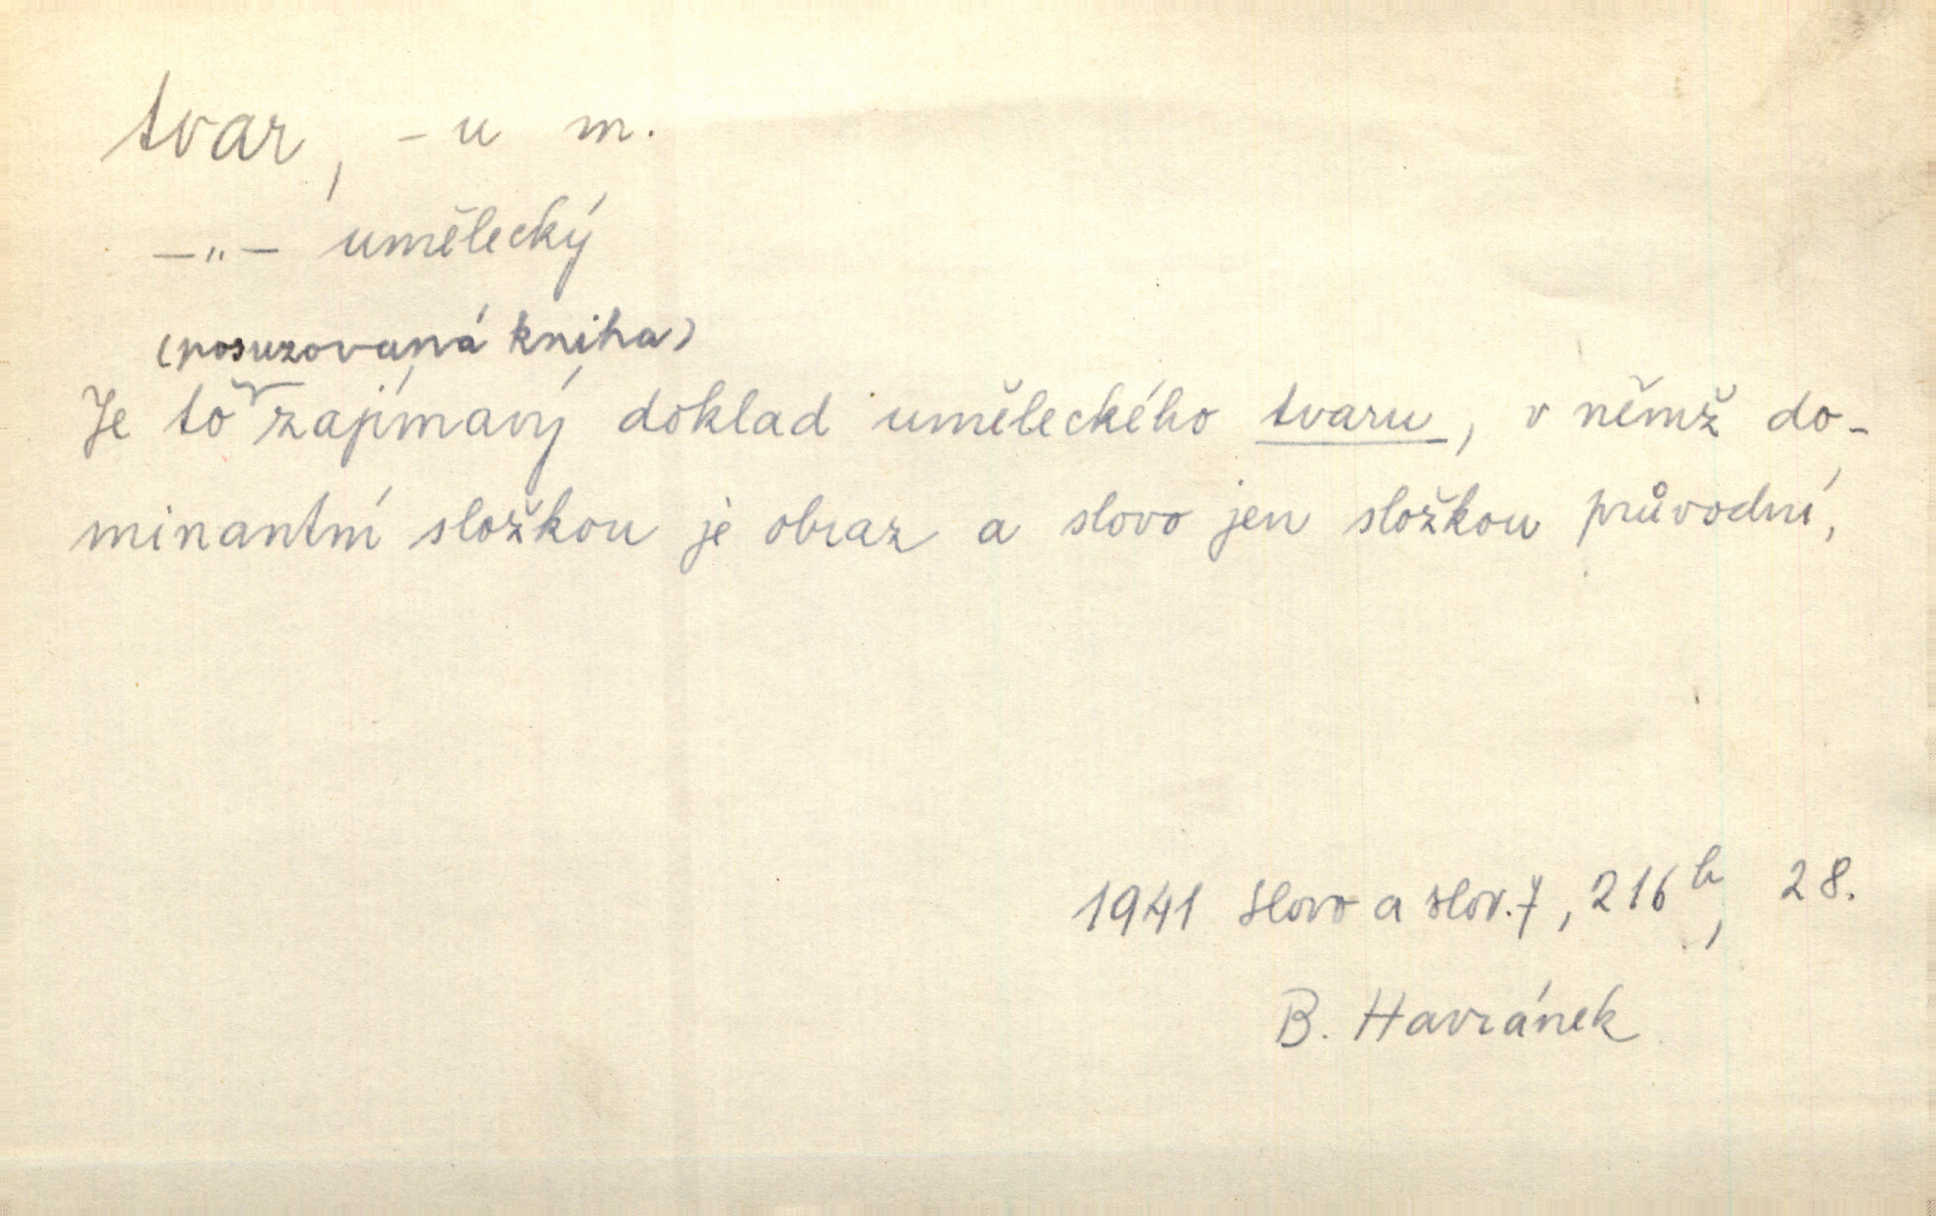 tvar, -u m.
—„— umělecký
(posuzovaná kniha)
Je to zajímavý doklad uměleckého tvaru, v němž do-
minantní složkou je obraz a slovo jen složkou průvodní,
1941 Slovo a slov. 7, 216b, 28.
B. Havránek